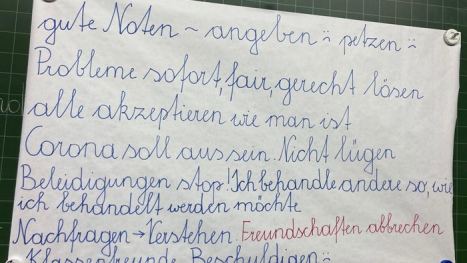 gute Noten ~ angeben :( petzen :(
Probleme sofort, fair, gerecht lösen
alle akzeptieren wie man ist
Corona soll aus sein. Nicht lügen
Beleidigungen stop! Ich behandle andere so, wie
ich behandelt werden möchte
Nachfragen → Verstehen. Freundschaften abbrechen
Klassenfreunde. Beschuldigen :(